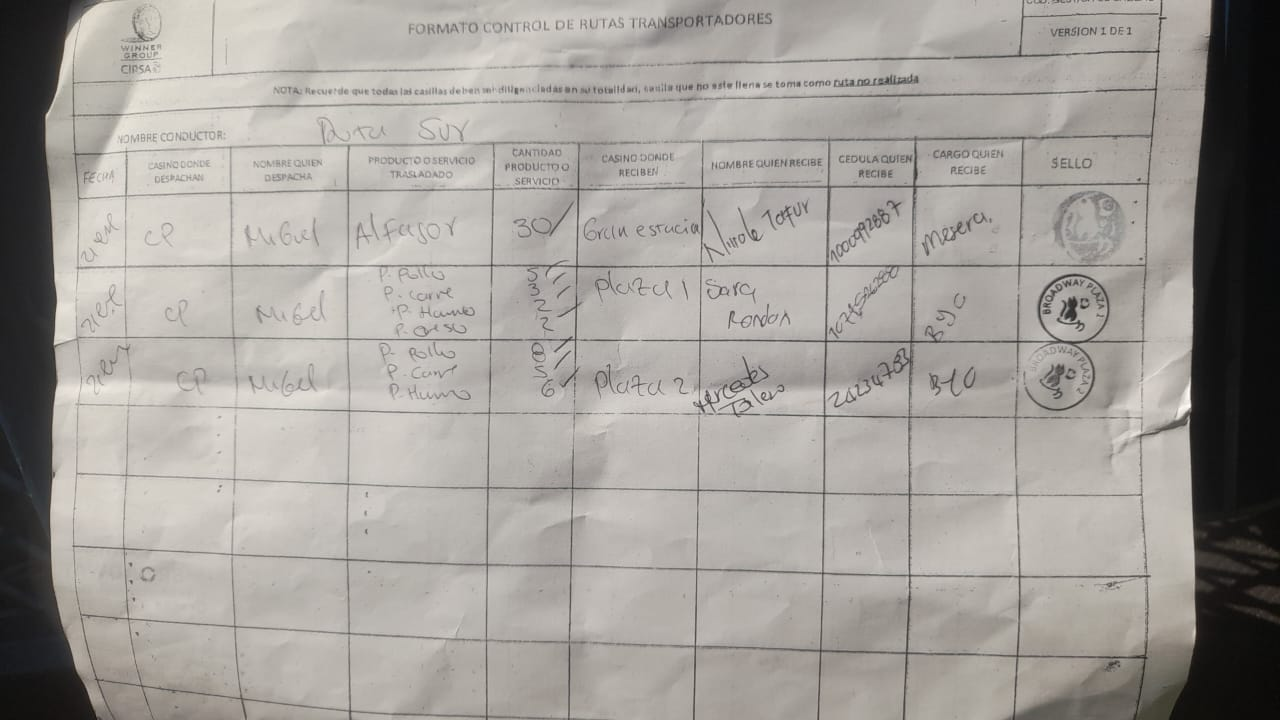 WINNER
GROUP
CIRSA
FORMATO CONTROL DE RUTAS TRANSPORTADORES
VERSION 1 DE 1
NOTA: Recuerde que todas las casillas deben ser diligenciadas en su totalidad, casilla que no este llena se toma como ruta no realizada
NOMBRE CONDUCTOR: Ruta Sur
FECHA
CASINO DONDE DESPACHAN
NOMBRE QUIEN DESPACHA
PRODUCTO O SERVICIO TRASLADADO
CANTIDAD PRODUCTO O SERVICIO
CASINO DONDE RECIBEN
NOMBRE QUIEN RECIBE
CEDULA QUIEN RECIBE
CARGO QUIEN RECIBE
SELLO
CP
MiGuel
Alfajor
30
Gran estacia
Nicole Tafur
1000992887
Mesera.
CP
MiGuel
P. Pollo 5
P. carne 3
P. Hawno 2
P. Queso 2
Plaza 1
Sara
Rondon
BYC
BROADWAY PLAZA 1
CP
MiGuel
P. Pollo 8
P. Carne 5
P. Hawno 6
Plaza 2
Mercedes
Talero
BYC
BROADWAY PLAZA 2